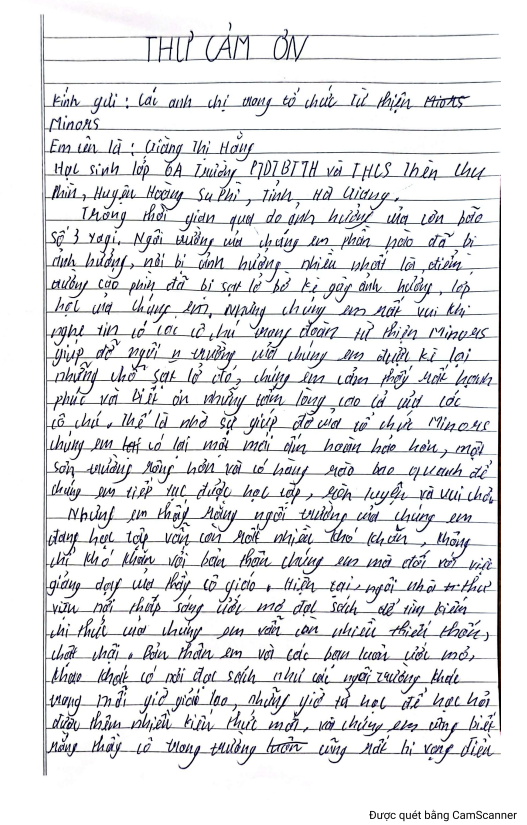 THƯ CẢM ƠN
Kính gửi : Các anh chị trong tổ chức Từ thiện Miors
Minors
Em tên là : Giàng Thị Hằng
Học sinh lớp 6A Trường PTDTBTTH và THCS Thèn Chu
Phìn, Huyện Hoàng Su Phì, Tỉnh, Hà Giang,
Trong thời gian qua do ảnh hưởng của cơn bão
số 3 yagi. Ngôi trường của chúng em phần nào đã bị
ảnh hưởng, nơi bị ảnh hưởng nhiều nhất là điểm
trường cáo phìn đã bị sạt lở bờ kè gây ảnh hưởng, lớp
học của chúng em. Nhưng chúng em rất vui khi
nghe tin có các cô chú trong đoàn từ thiện Minors
giúp đỡ ngôi n trường của chúng em được kè lại
những chỗ sạt lở đó, chúng em cảm thấy rất hạnh
phúc và biết ơn những tấm lòng cao cả của các
cô chú. Thế là nhờ sự giúp đỡ của tổ chức Minors
chúng em có lại một mái ấm hoàn hảo hơn, một
sân trường rộng hơn và có hàng rào bao quanh để
chúng em tiếp tục được học tập, rèn luyện và vui chơi.
Nhưng em thấy rằng ngôi trường của chúng em
đang học tập vẫn còn rất nhiều khó khăn, không
chỉ khó khăn với bản thân chúng em mà đối với việc
giảng dạy của thầy cô giáo. Hiện tại, ngôi nhà tr thư
viện nơi thắp sáng ước mơ đọc sách để tìm kiếm
chi thức của chúng em vẫn còn nhiều thiếu thốn,
chật chội. Bản thân em và các bạn luôn ước mơ,
khao khát có nơi đọc sách như các ngôi trường khác
trong mỗi giờ giải lao, những giờ tự học để học hỏi
được thêm nhiều kiến thức mới, và chúng em cũng biết
rằng thầy cô trong trường luôn cũng rất hi vọng điều
Được quét bằng CamScanner